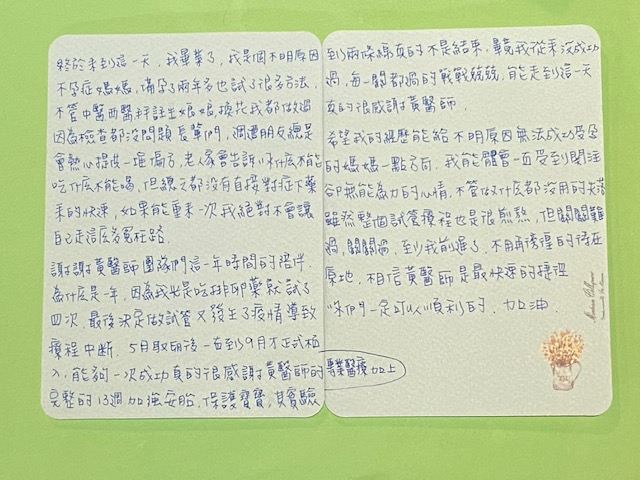 終於來到這一天，我畢業了，我是個不明原因
不孕症媽媽，備孕了兩年多也試了很多方法，
不管中醫西醫拜註生娘娘，換花我都做過
因為檢查都沒問題長輩們，週遭朋友總是
會熱心提供一堆偏方，老人家會告訴你什麼不能
吃什麼不能喝，但總之都沒有直接對症下藥
來的快速，如果能重來一次我絕對不會讓
自己走這麼多冤枉路.
謝謝黃醫師團隊們這一年時間的陪伴.
為什麼是一年，因為我光是吃排卵藥就試了
四次，最後決定做試管又發生了疫情導致
療程中斷. 5月取卵後一直到9月才正式植
入，能夠一次成功真的很感謝黃醫師的專業醫療加上
完整的13週加強安胎，保護寶寶，其實驗
到兩條線真的不是結束，畢竟我從來沒成功
過，每一關都過的戰戰兢兢，能走到這一天
真的很感謝黃醫師.
希望我的經歷能給不明原因無法成功受孕
的媽媽一點方向，我能體會一直受到關注
卻無能為力的心情，不管做什麼都沒用的失落
雖然整個試管療程也是很煎熬，但關關難
過，關關過，至少我前進了，不用再徬徨的待在
原地，相信黃醫師是最快速的捷徑
你們一定可以順利的，加油.